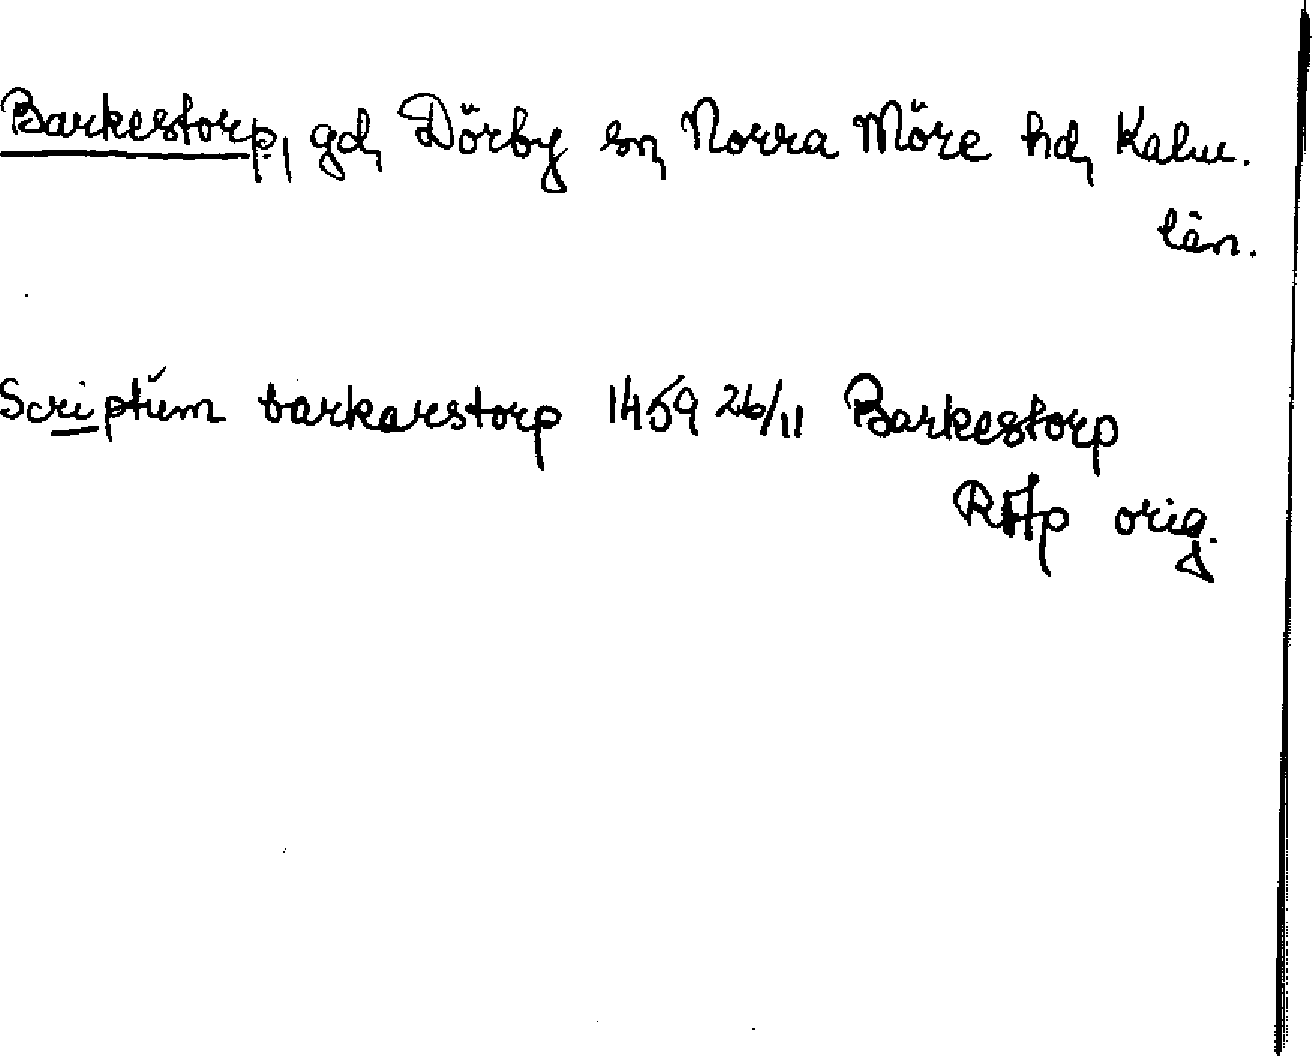 Barkestorp, gd, Dörby sn, Norra Möre hd, Kalm.
län.
Scriptum barkarstorp 1459 26/11 Barkestorp
RAp orig.